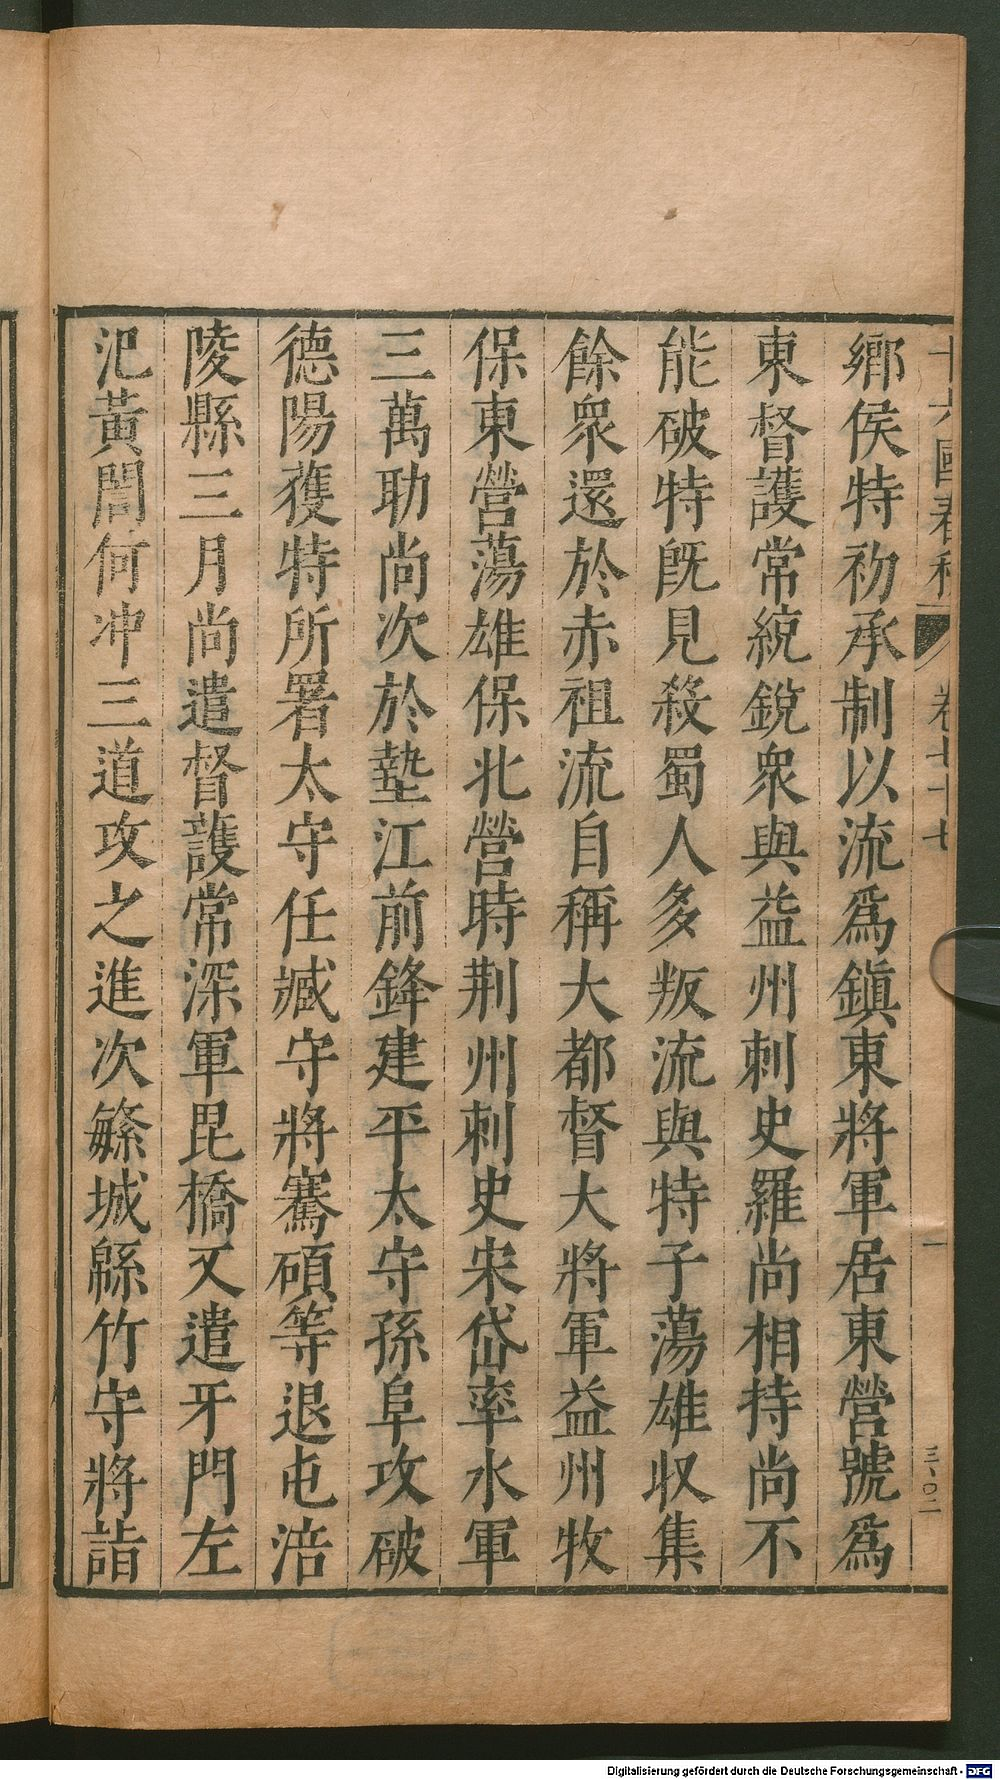 十六國春秋
卷七十七
一
三〇二
鄉侯特初承制以流爲鎭東將軍居東營號爲
東督護常統銳衆與益州刺史羅尚相持尚不
能破特旣見殺蜀人多叛流與特子蕩雄収集
餘衆還於赤祖流自稱大都督大將軍益州牧
保東營蕩雄保北營時荆州刺史宋岱率水軍
三萬助尚次於墊江前鋒建平太守孫阜攻破
德陽獲特所署太守任臧守將騫碩等退屯涪
陵縣三月尚遣督護常深軍毘橋又遣牙門左
汜黃誾何冲三道攻之進次緐城緜竹守將詣
Digitalisierung gefördert durch die Deutsche Forschungsgemeinschaft - DFG